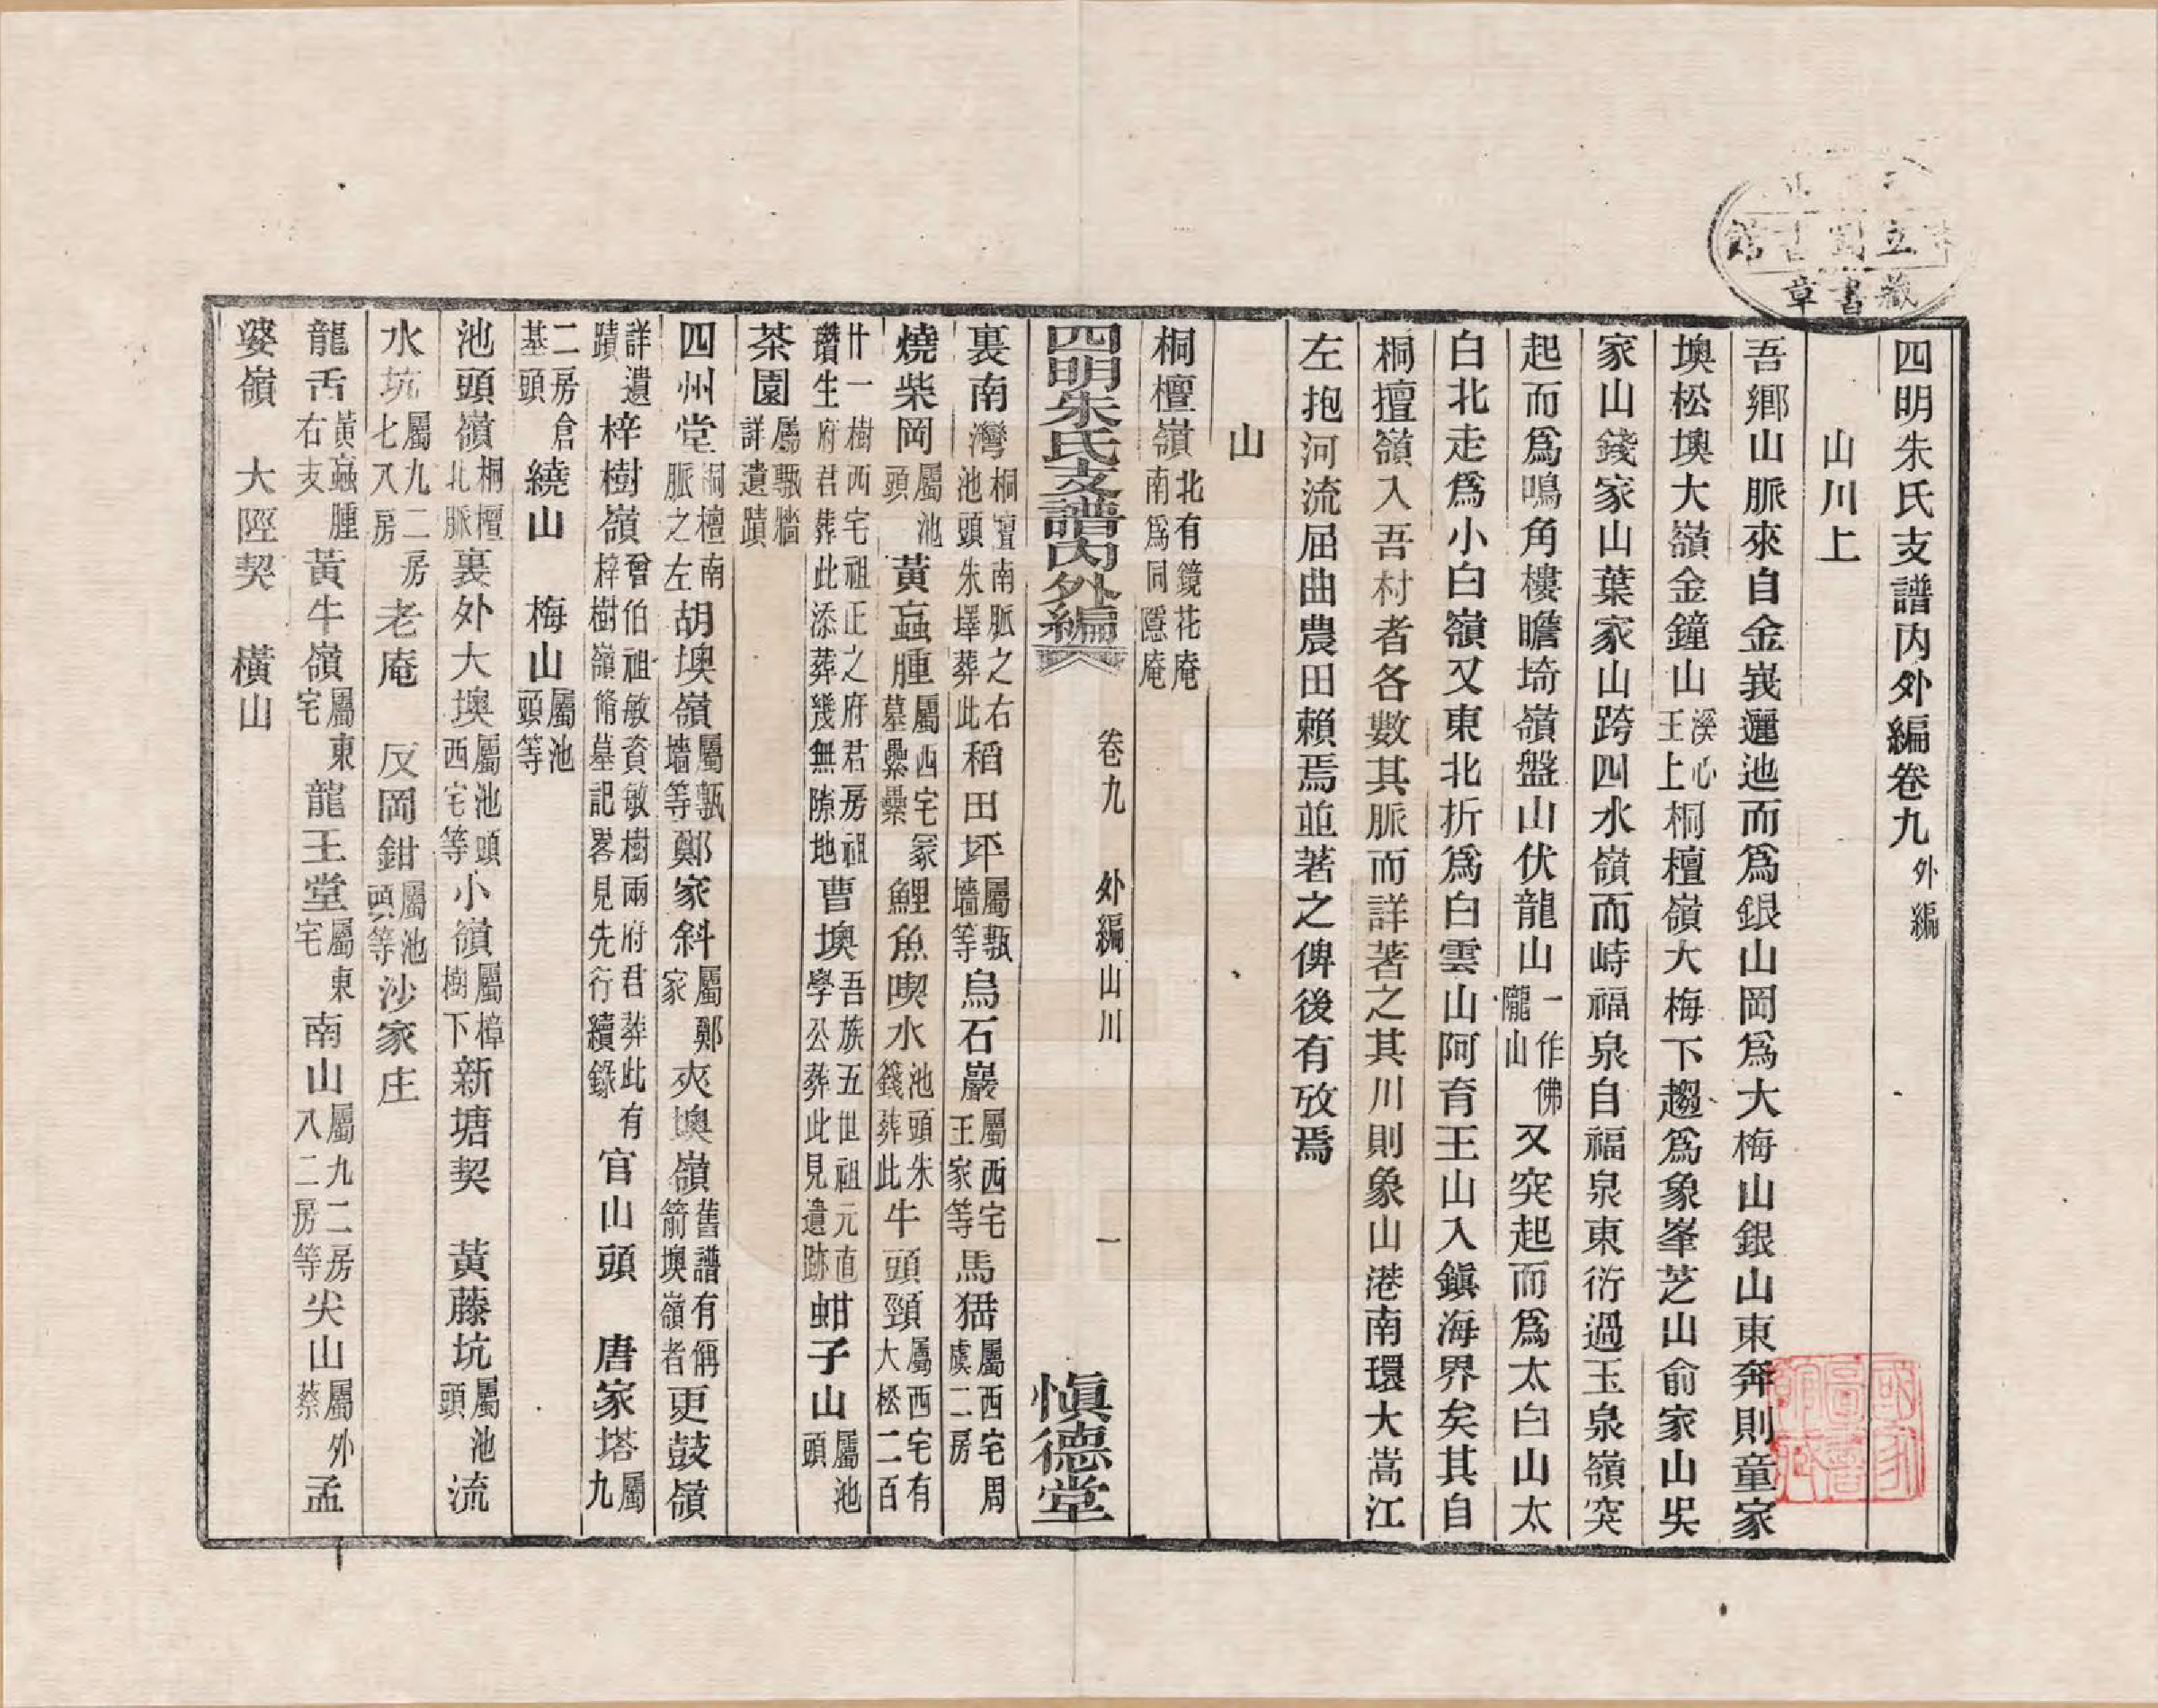 四明朱氏支譜內外編卷九外編
山川上
吾鄉山脈來自金峩邐迆而爲銀山岡爲大梅山銀山東奔則童家
墺松墺大嶺金鐘山溪心王上桐檀嶺大梅下趨爲象峯芝山俞家山吳
家山錢家山葉家山跨四水嶺而峙福泉自福泉東衍過玉泉嶺突
起而爲鳴角樓瞻埼嶺盤山伏龍山一作佛隴山又突起而爲太白山太
白北走爲小白嶺又東北折爲白雲山阿育王山入鎭海界矣其自
桐擅嶺入吾村者各數其脈而詳著之其川則象山港南環大嵩江
左抱河流屈曲農田賴焉並著之俾後有攷焉
山
桐檀嶺北有鏡花庵南爲同隱庵
四明朱氏支譜內外編 卷九 外編山川 一 愼德堂
裏南灣桐壇南脈之右池頭朱墿葬此稻田坪屬甎墻等烏石巖屬西宅王家等馬猫屬西宅周虞二房
燒柴岡屬池頭黃蝱腫屬西宅冢墓纍纍鯉魚喫水池頭朱籛葬此牛頭頸屬西宅有大松二百
廿一樹西宅祖正之府君房祖瓚生府君葬此添葬幾無隙地曹墺吾族五世祖元直學公葬此見遺跡蚶子山屬池頭
茶園屬甎牆詳遺蹟
四州堂桐檀南脈之左胡墺嶺屬甎墻等鄭家斜屬鄭家夾墺嶺舊譜有偁箭墺嶺者更鼓嶺
詳遺蹟梓樹嶺曾伯祖敏資敏樹兩府君葬此有梓樹嶺脩墓記畧見先行續錄官山頭 唐家塔屬九
二房倉基頭繞山 梅山屬池頭等
池頭嶺桐檀北脈裏外大墺屬池頭西宅等小嶺屬樟樹下新塘契 黃藤坑屬池頭流
水坑屬九二房七八房老庵 反岡鉗屬池頭等沙家庄
龍舌黃蝱腫右支黃牛嶺屬東宅龍王堂屬東宅南山屬九二房八二房等尖山屬外蔡孟
婆嶺 大陘契 橫山